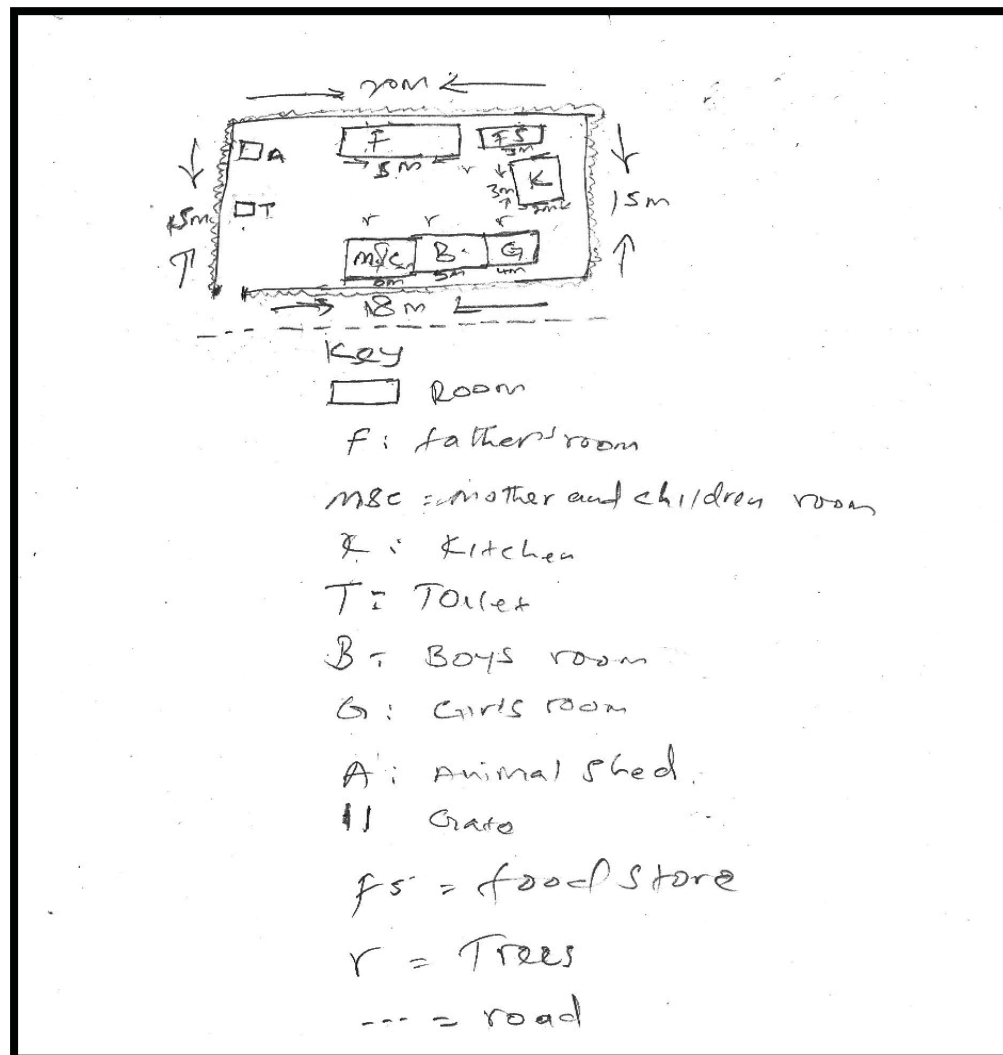 20m
F
FS
A
5m
3m
K
3m
15m
T
15m
r
r
r
r
M&C
B
G
5m
4m
18m
Key
Room
F: father's room
M&C = Mother and children room
K: Kitchen
T: Toilet
B: Boys room
G: Girls room
A: Animal Shed.
Gate
FS = food Store
r = Trees
--- = road